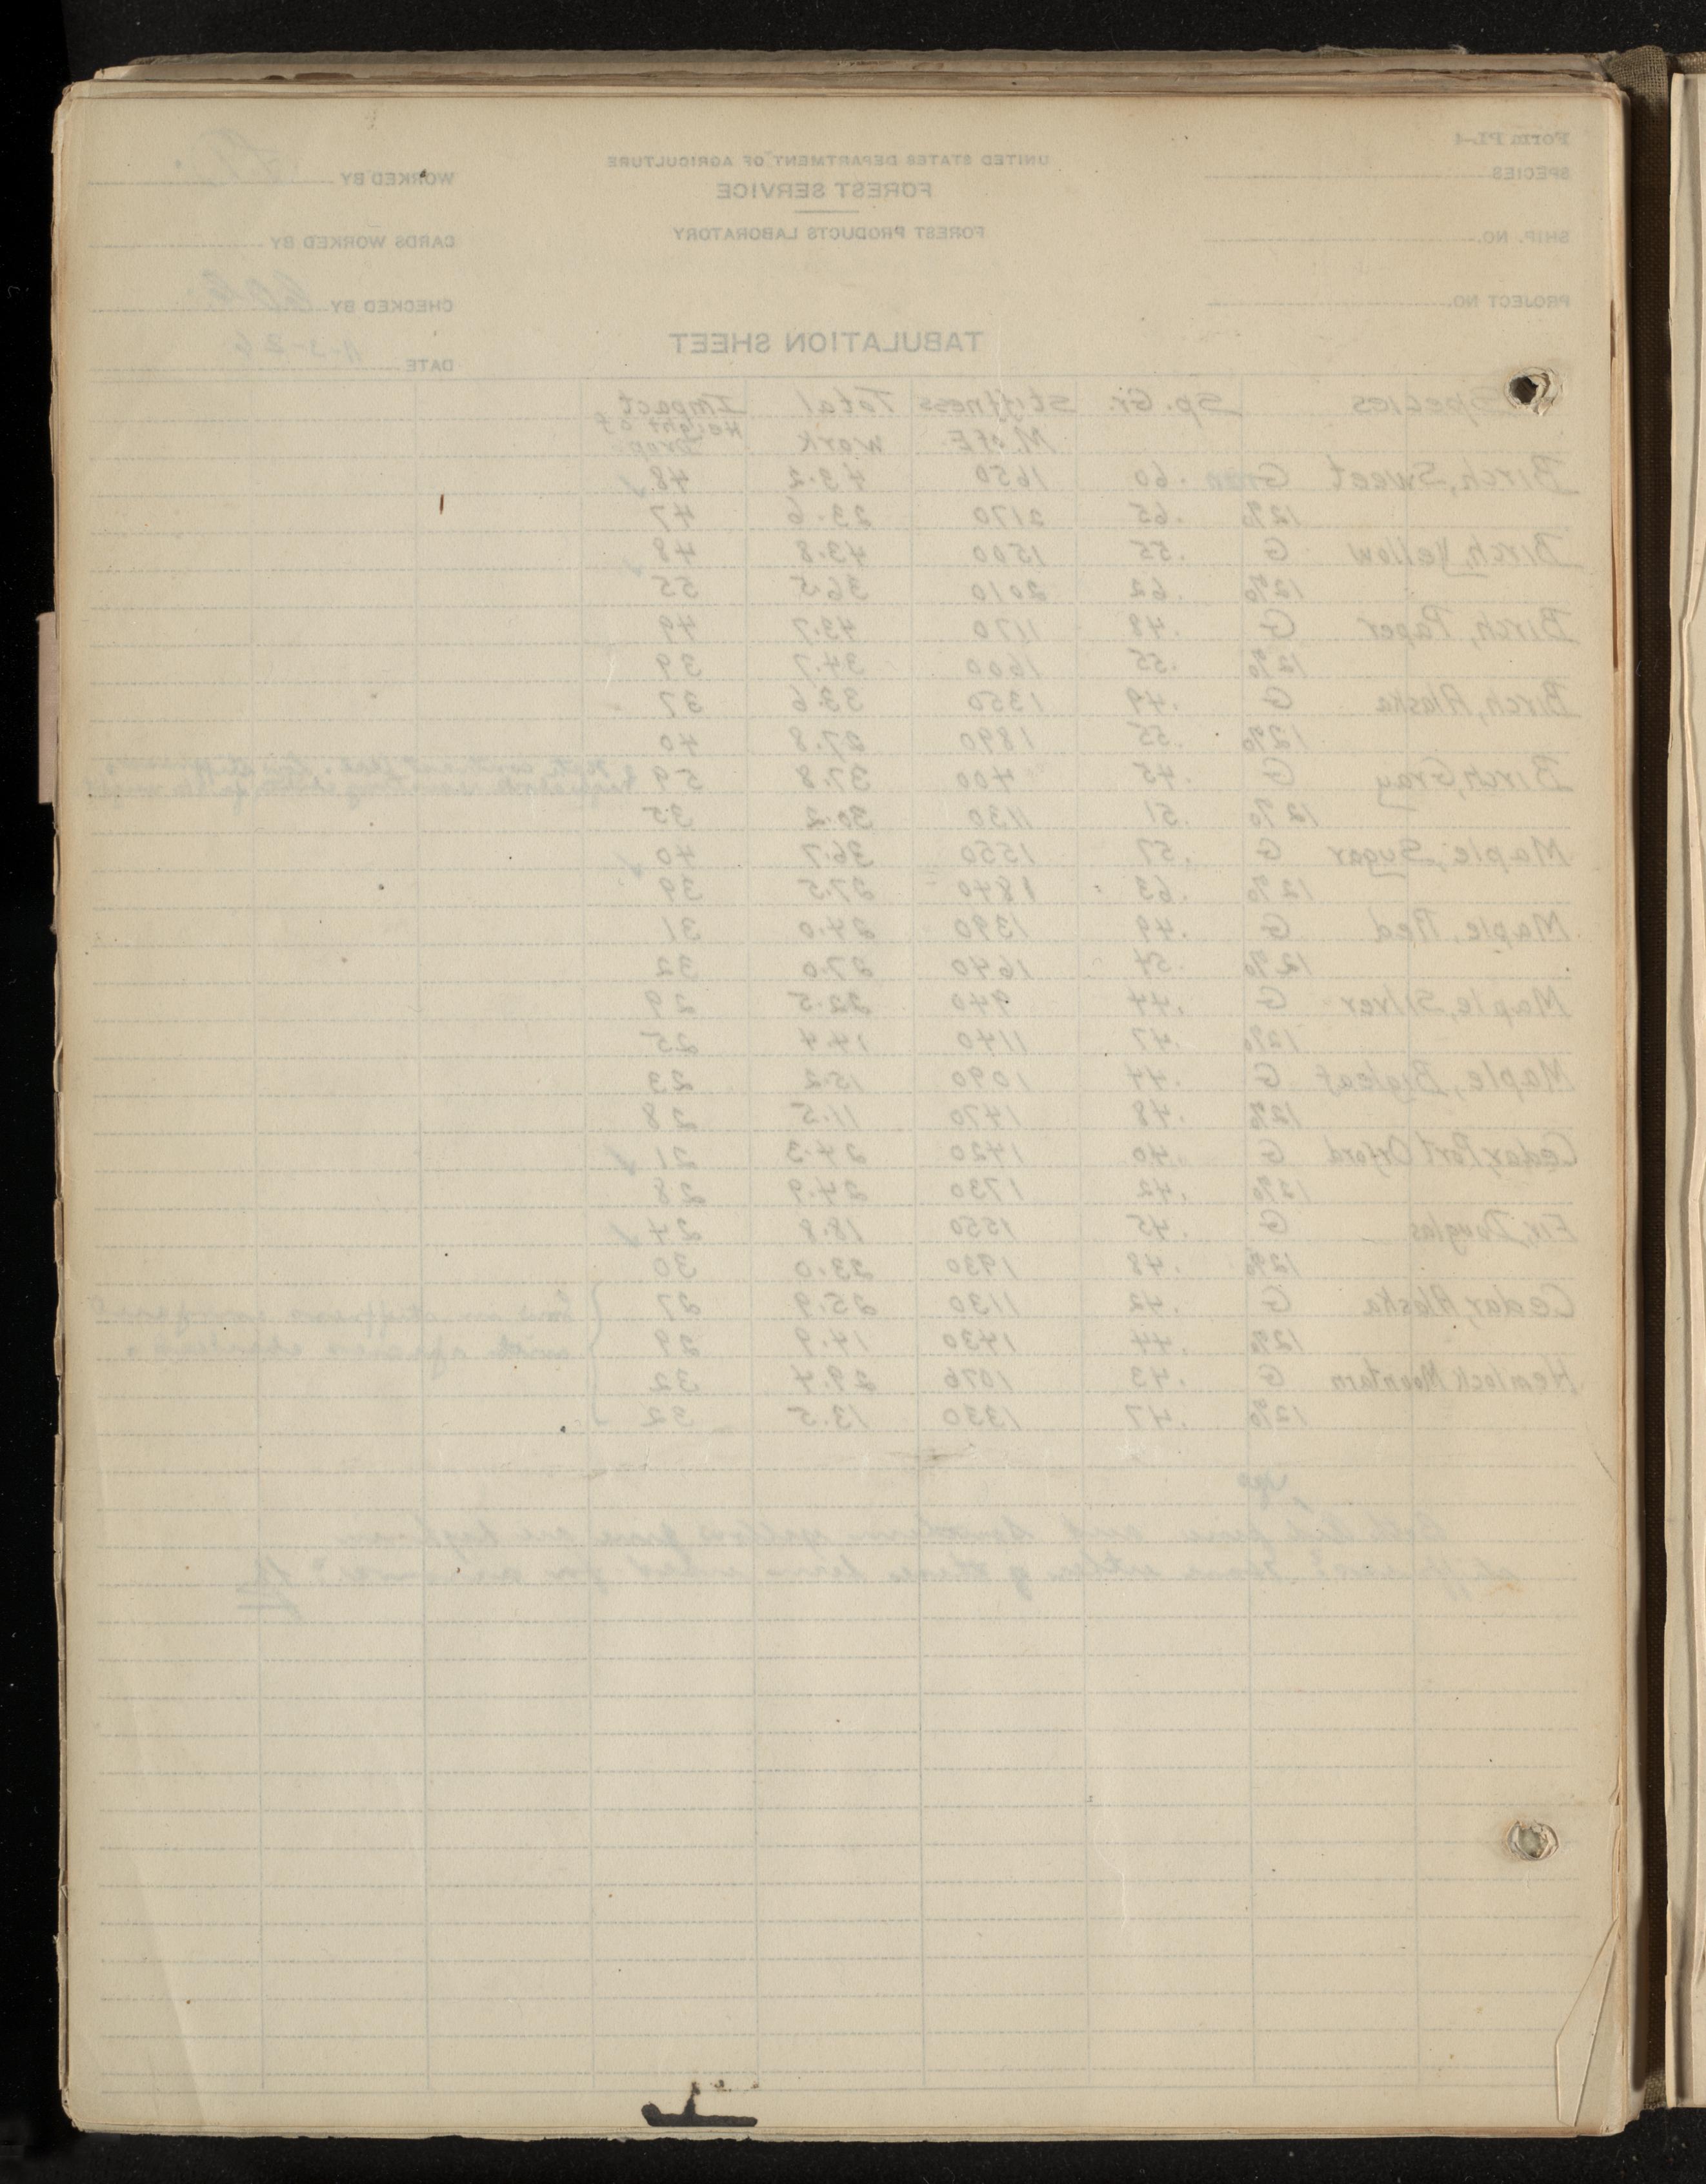 Form PL-4
UNITED STATES DEPARTMENT OF AGRICULTURE
FOREST SERVICE
FOREST PRODUCTS LABORATORY
SPECIES
SHIP. NO.
PROJECT NO.
WORKED BY
CARDS WORKED BY
CHECKED BY
DATE 11-3-26
TABULATION SHEET
Species Sp. Gr. Stiffness Total Impact
M. of E. Work Height of
Drop
Birch, Sweet Green .60 1650 43.2 48 ✓
12% .65 2170 23.6 47
Birch, Yellow G .55 1500 43.8 48 ✓
12% .62 2010 36.5 55
Birch, Paper G .48 1170 43.7 49
12% .55 1600 34.7 39
Birch, Alaska G .49 1350 33.6 37
12% .55 1890 27.8 40
Birch, Gray G .45 400 37.8 59
12% .51 1130 30.2 35
Maple, Sugar G .57 1550 36.7 40 ✓
12% .63 1840 27.5 39
Maple, Red G .49 1390 24.0 31
12% .54 1640 27.0 32
Maple, Silver G .44 940 22.5 29
12% .47 1140 14.4 25
Maple, Bigleaf G .44 1090 15.2 23
12% .48 1470 11.5 28
Cedar, Port Orford G .40 1420 24.3 21 ✓
12% .42 1730 24.9 28
Fir, Douglas G .45 1550 18.8 24 ✓
12% .48 1930 23.0 30
Cedar, Alaska G .42 1130 25.9 27
12% .44 1430 14.9 29
Hemlock Mountain G .43 1076 29.4 32
12% .47 1330 13.5 32
low in stiffness compared
with
and Southern yellow pine are